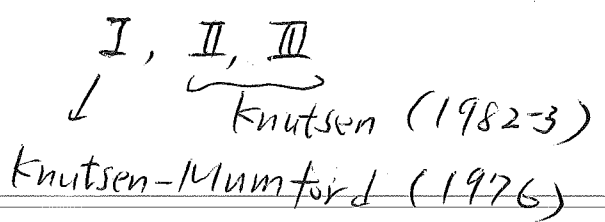 I, II, III
Knutsen (1982-3)
Knutsen-Mumford (1976)